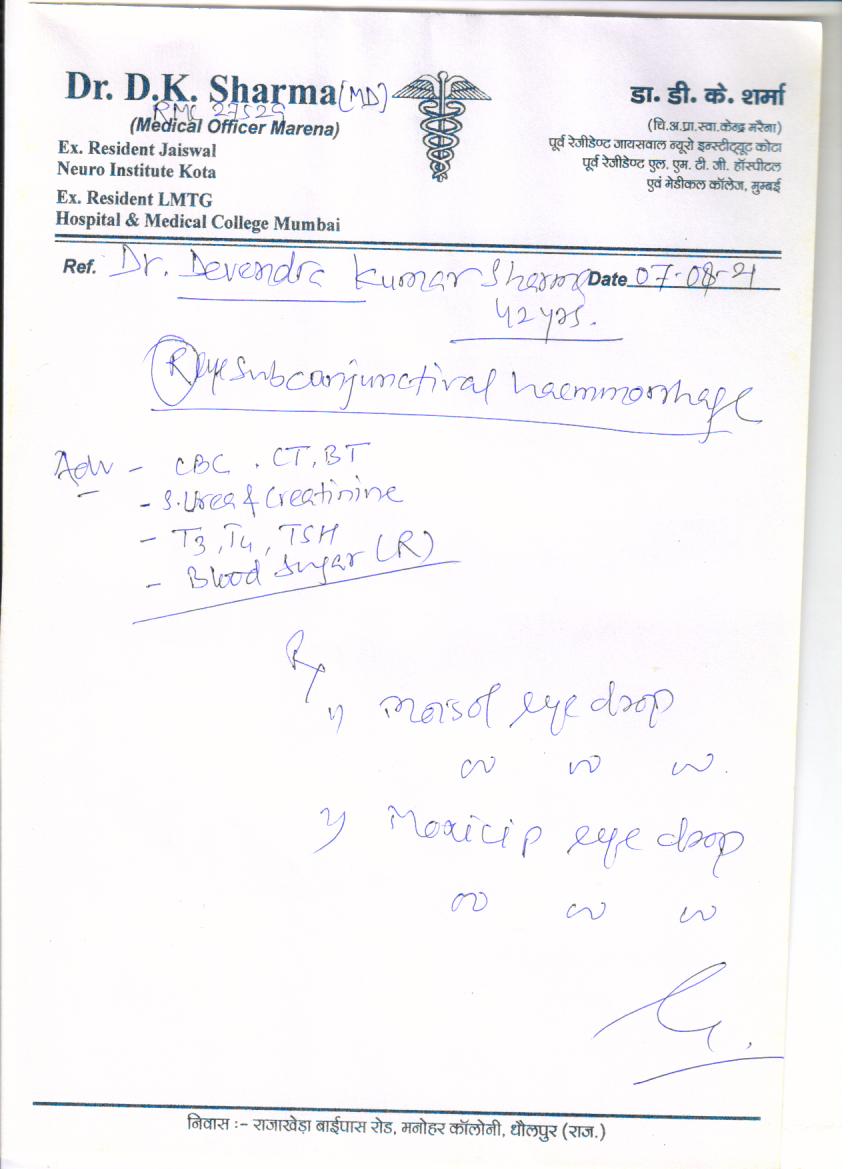 Dr. D.K. Sharma (MD)
RMC 27529
(Medical Officer Marena)
Ex. Resident Jaiswal
Neuro Institute Kota
Ex. Resident LMTG
Hospital & Medical College Mumbai
डा. डी. के. शर्मा
(चि.अ.प्रा.स्वा.केन्द्र मरैना)
पूर्व रेजीडेण्ट जायसवाल न्यूरो इन्स्टीट्यूट कोटा
पूर्व रेजीडेण्ट एल. एम. टी. जी. हॉस्पीटल
एवं मेडीकल कॉलेज, मुम्बई
Ref. Dr. Devendra Kumar Sharma Date 07-08-21
42 yrs.
(R) eye subconjunctival haemmorrhage
Adv - CBC, CT, BT
- S. Urea & Creatinine
- T3, T4, TSH
- Blood Sugar (R)
Rx
1) Moisol eye drop
2) Moxicip eye drop
निवास :- राजाखेड़ा बाईपास रोड, मनोहर कॉलोनी, धौलपुर (राज.)